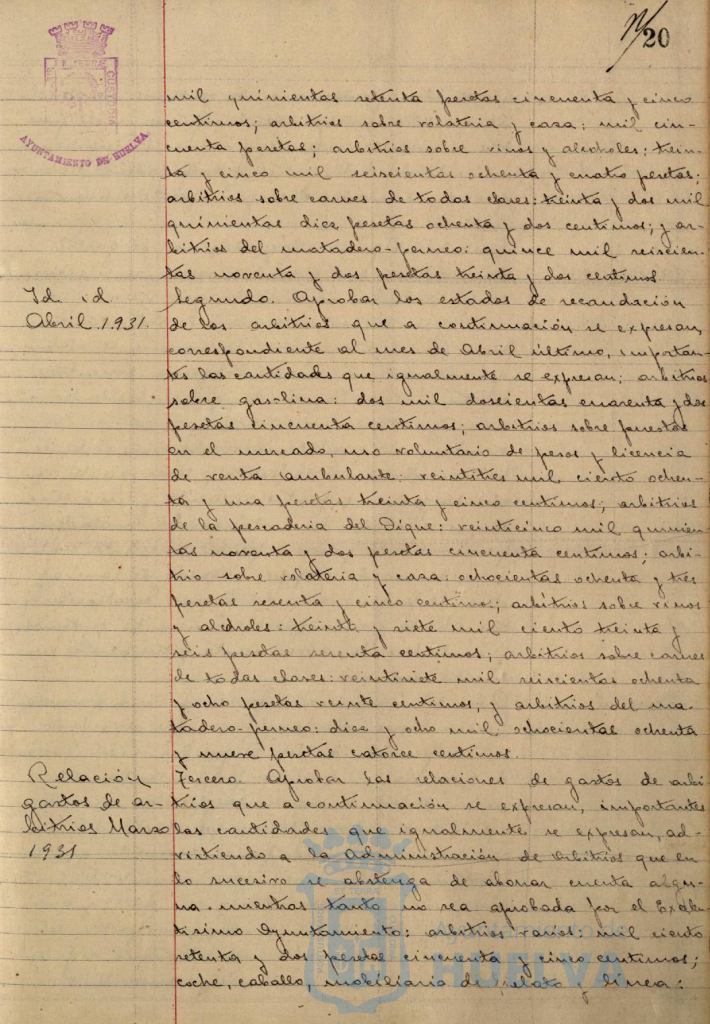 20
AYUNTAMIENTO DE HUELVA
mil quinientas setenta pesetas cincuenta y cinco
centimos; arbitrios sobre volateria y caza: mil cin-
cuenta pesetas; arbitrios sobre vinos y alcoholes: trein-
ta y cinco mil seiscientas ochenta y cuatro pesetas;
arbitrios sobre carnes de todas clases: treinta y dos mil
quinientas diez pesetas ochenta y dos centimos; y ar-
bitrios del matadero-perneo: quince mil seiscien-
tas noventa y dos pesetas treinta y dos centimos
Id. id.
Abril.1931.
Segundo. Aprobar los estados de recaudación
de los arbitrios que a continuación se expresan,
correspondiente al mes de Abril último, importan-
tes las cantidades que igualmente se expresan: arbitrios
sobre gasolina: dos mil doscientas cuarenta y dos
pesetas cincuenta centimos; arbitrios sobre puestos
en el mercado, uso voluntario de pesos y licencia
de venta ambulante: veintitres mil ciento ochen-
ta y una pesetas treinta y cinco centimos; arbitrios
de la pescaderia del Dique: veinticinco mil quinien-
tas noventa y dos pesetas cincuenta centimos; arbi-
trio sobre volateria y caza: ochocientas ochenta y tres
pesetas sesenta y cinco centimos; arbitrios sobre vinos
y alcoholes: treinta y siete mil ciento treinta y
seis pesetas sesenta centimos; arbitrios sobre carnes
de todas clases: veintisiete mil seiscientas ochenta
y ocho pesetas veinte centimos, y arbitrios del ma-
tadero-perneo: diez y ocho mil ochocientas ochenta
y nueve pesetas catorce centimos.
Relación
gastos de ar-
bitrios Marzo
1931
Tercero. Aprobar las relaciones de gastos de arbi-
trios que a continuación se expresan, importantes
las cantidades que igualmente se expresan, ad-
virtiendo a la Administración de Arbitrios que en
lo sucesivo se abstenga de abonar cuenta algu-
na mientras tanto no sea aprobada por el Excelen-
tisimo Ayuntamiento: arbitrios varios: mil ciento
setenta y dos pesetas cincuenta y cinco centimos;
coche, caballo, mobiliaria de y línea:
HUELVA